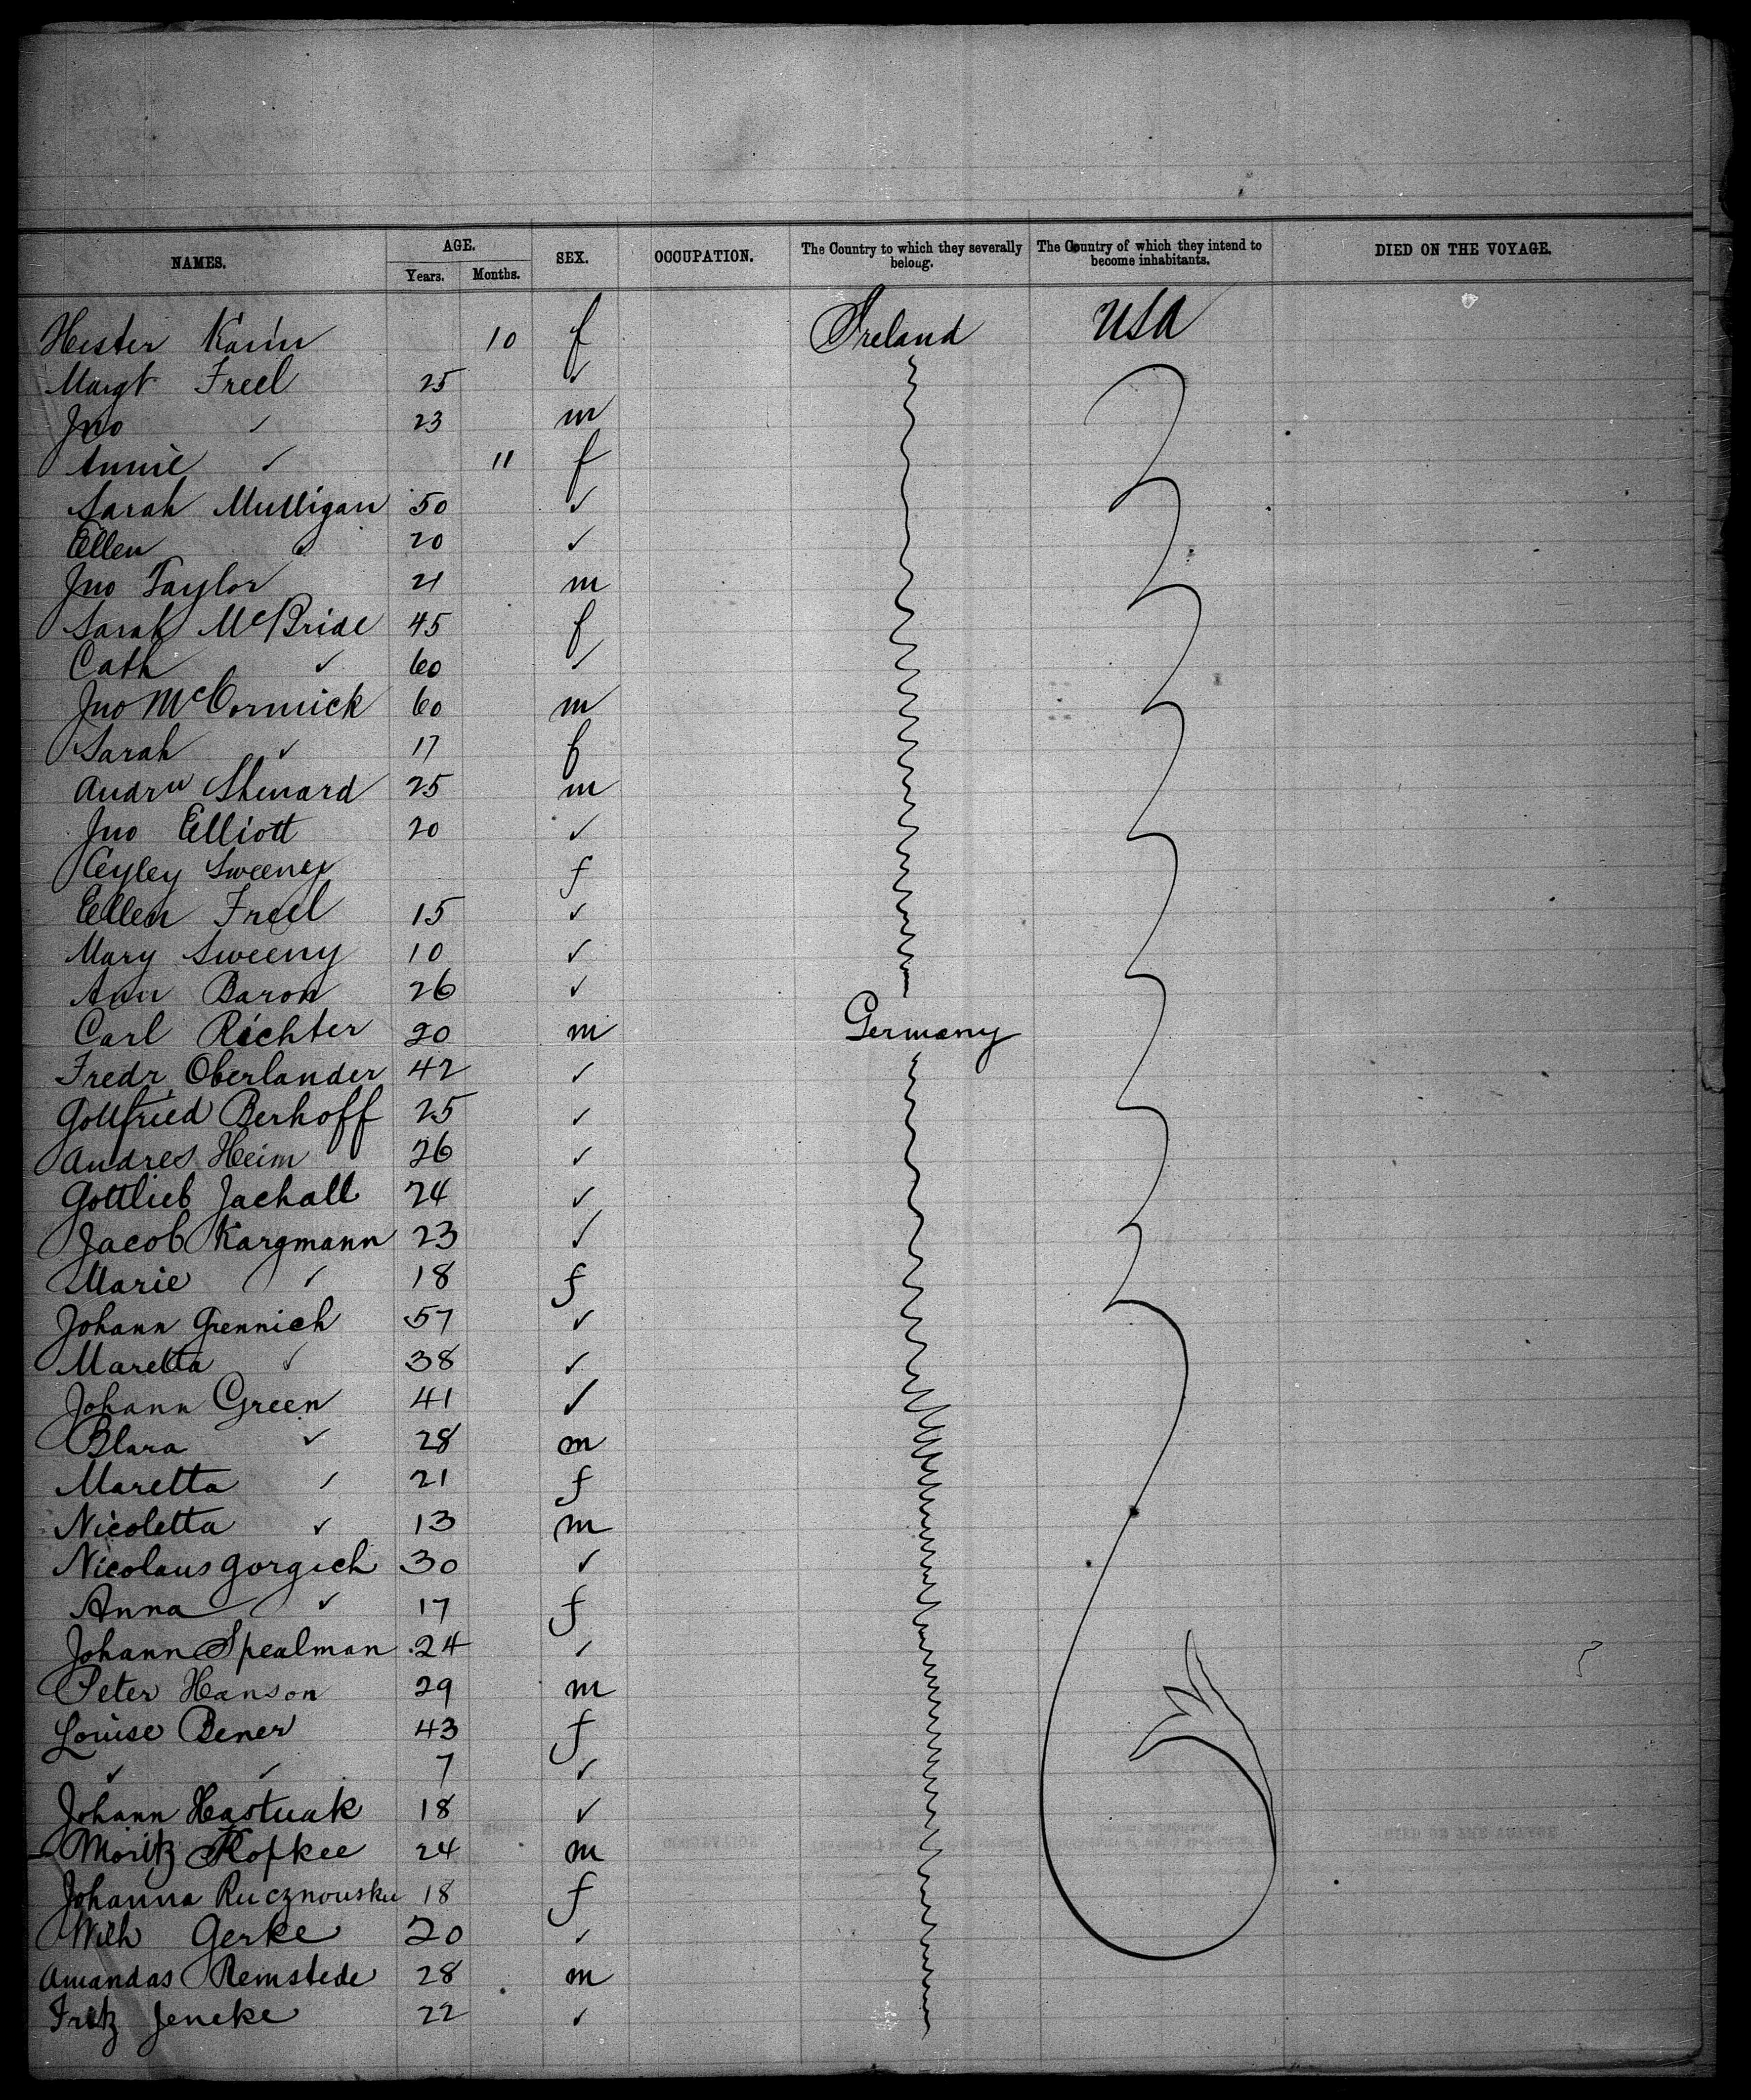 NAMES. AGE. SEX. OCCUPATION. The Country to which they severally belong. The Country of which they intend to become inhabitants. DIED ON THE VOYAGE.
Years. Months.
Hester 10 f Ireland USA
Margt Freel 25 ✓
Jno ✓ 23 m
Annie ✓ 11 f
Sarah Mulligan 50 ✓
Ellen ✓ 20 ✓
Jno Taylor 21 m
Sarah McBride 45 f
Cath ✓ 60 ✓
Jno McCormick 60 m
Sarah ✓ 17 f
Andrw 25 m
Jno Elliott 20 ✓
Sweeney f
Ellen Freel 15 ✓
Mary Sweeny 10 ✓
Ann Baron 26 ✓
Carl Richter 20 m Germany
Fredr Oberlander 42 ✓
Gottfried Berhoff 25 ✓
Andres Heim 26 ✓
Gottlieb Jachall 24 ✓
Jacob Kargmann 23 ✓
Marie ✓ 18 f
Johann Grennich 57 ✓
Maretta ✓ 38 ✓
Johann Green 41 ✓
Blara ✓ 28 m
Maretta ✓ 21 f
Nicoletta ✓ 13 m
Nicolaus Gorgich 30 ✓
Anna ✓ 17 f
Johann Spealman 24 ✓
Peter Hanson 29 m
Louise Bener 43 f
✓ ✓ 7 ✓
Johann Hastuak 18 ✓
Moritz 24 m
Johanna 18 f
Wilh Gerke 20 ✓
Amandas Remstede 28 m
Fritz Jencke 22 ✓